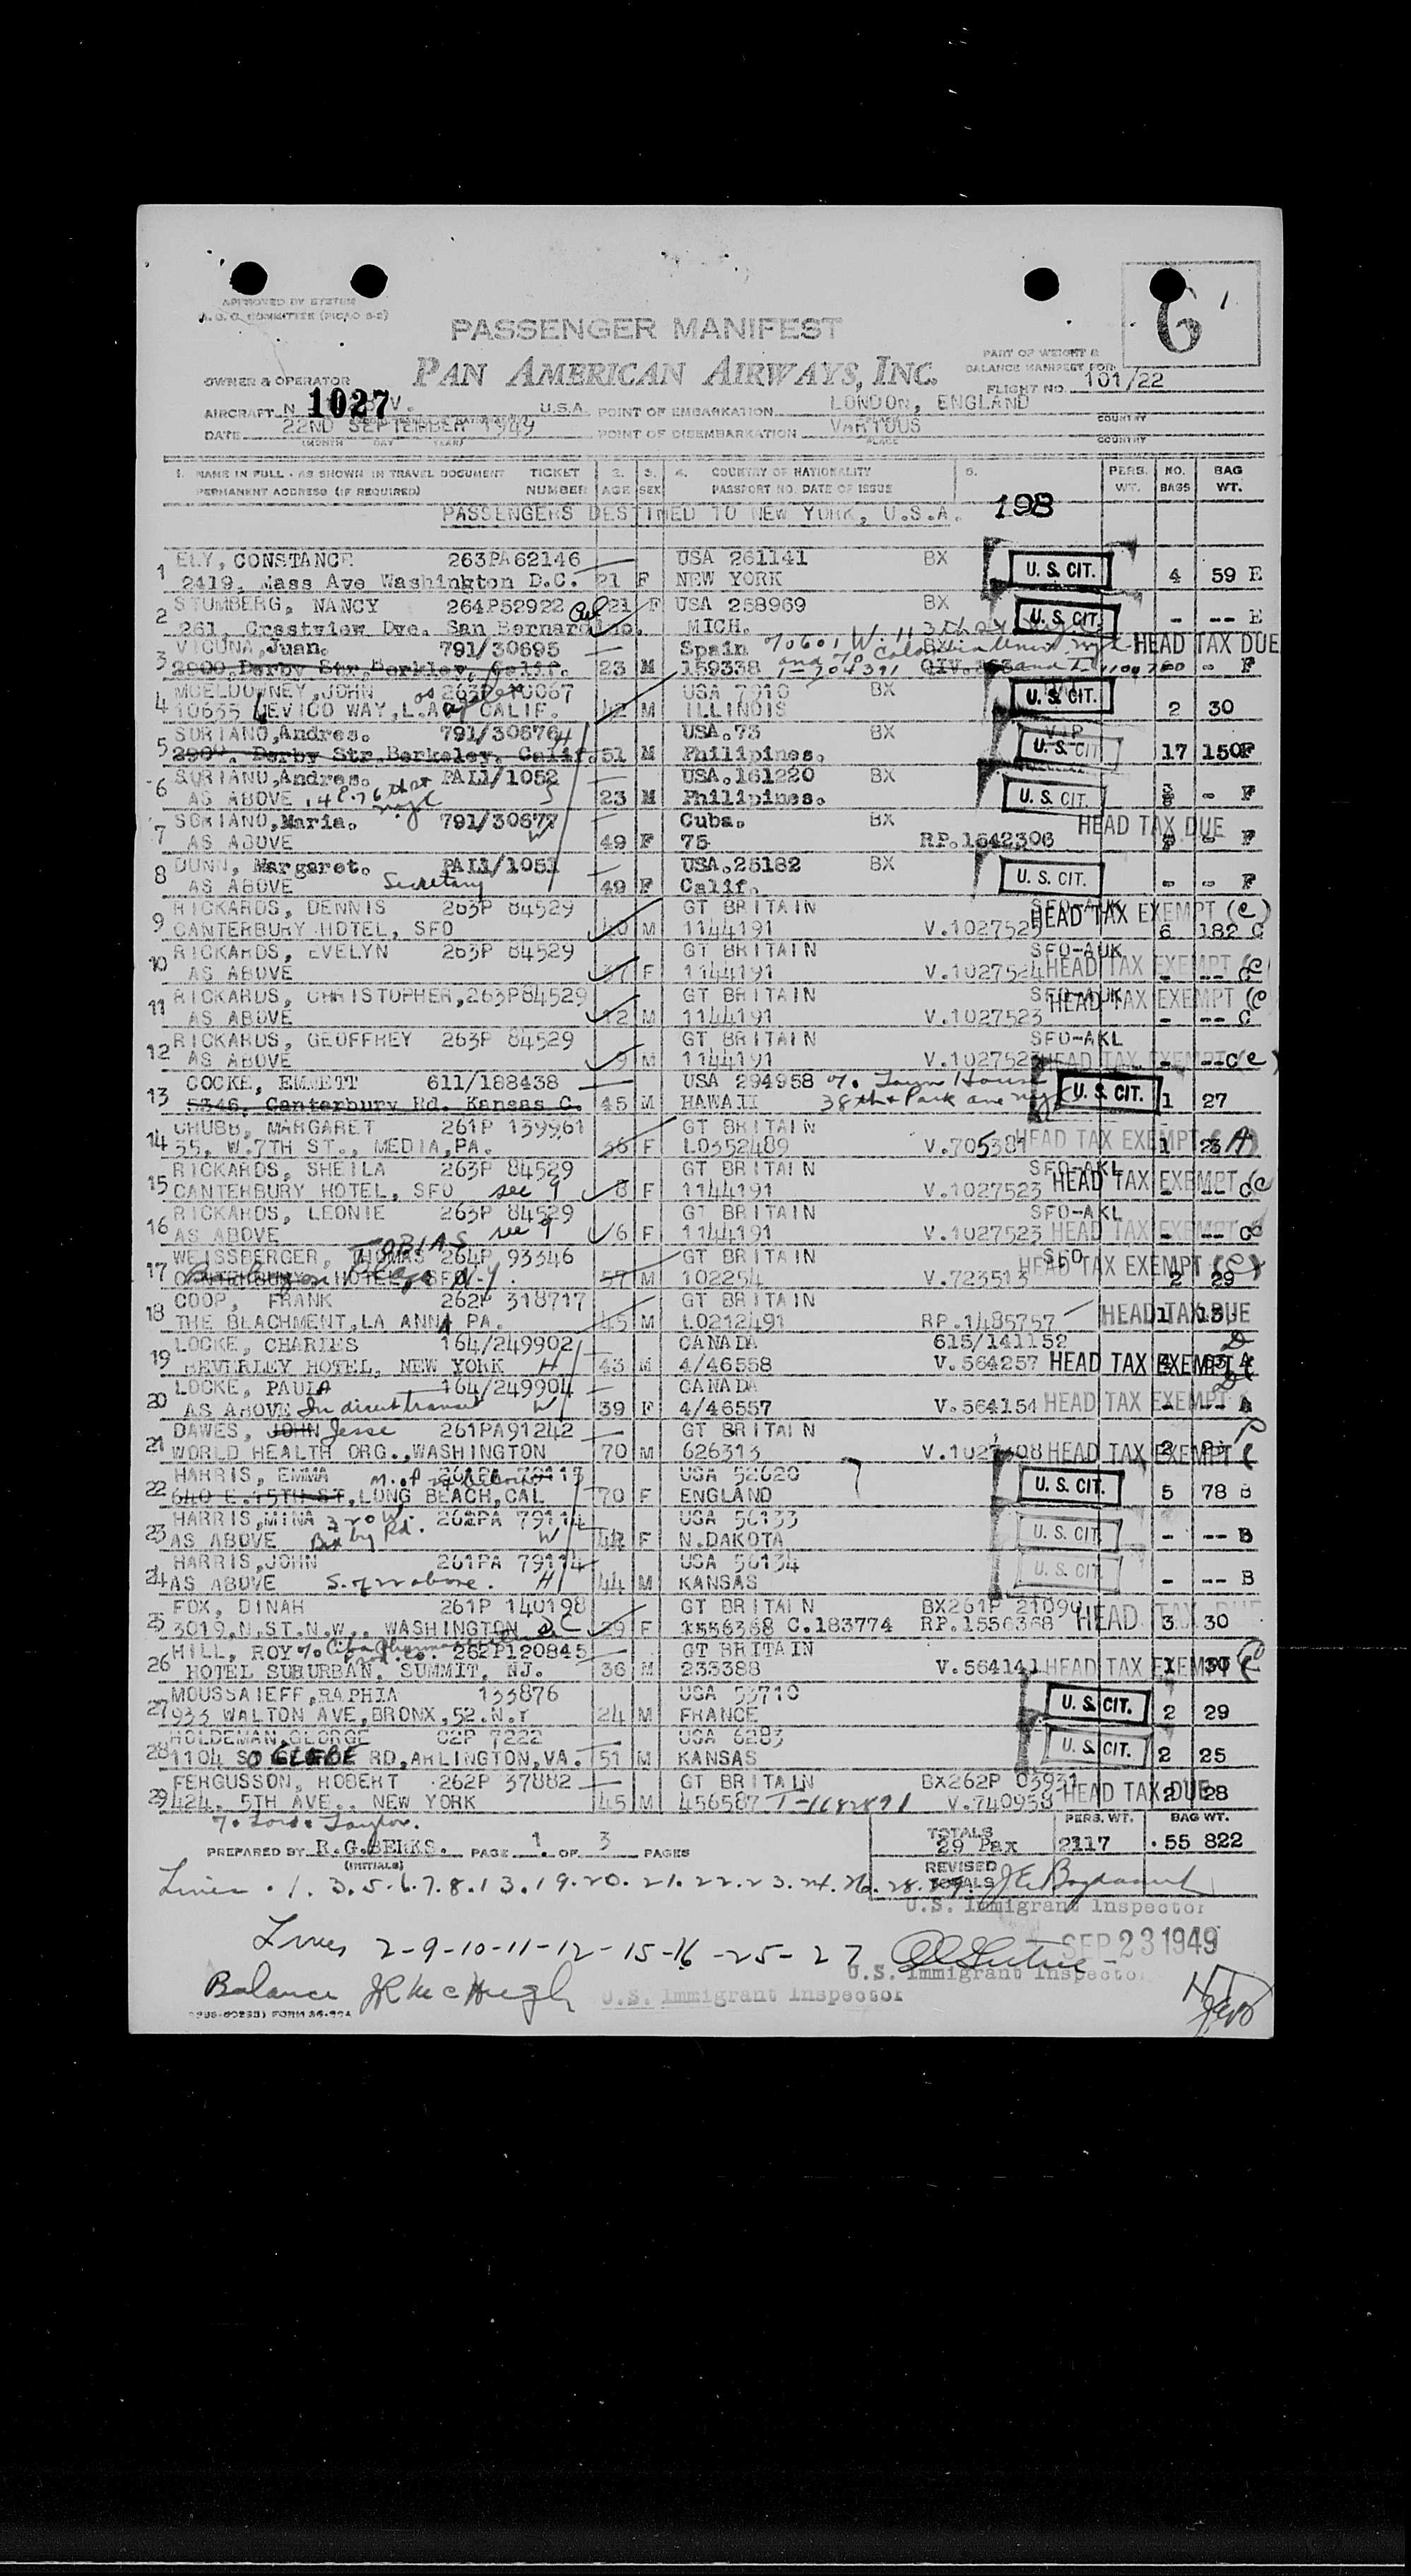 6
APPROVED BY SYSTEM
A. O. C. COMMITTEE (PICAO S-2)
PASSENGER MANIFEST
PAN AMERICAN AIRWAYS, INC.
PART OF WEIGHT &
BALANCE MANIFEST FOR
FLIGHT NO. 101/22
OWNER & OPERATOR
AIRCRAFT N 1027 V. U.S.A. POINT OF EMBARKATION LONDON, ENGLAND
COUNTRY
DATE 22ND SEPTEMBER 1949 POINT OF DISEMBARKATION VARIOUS
(MONTH DAY YEAR) PLACE COUNTRY
1. NAME IN FULL - AS SHOWN IN TRAVEL DOCUMENT TICKET 2. 3. 4. COUNTRY OF NATIONALITY 5. PERS. NO. BAG
PERMANENT ADDRESS (IF REQUIRED) NUMBER AGE SEX PASSPORT NO. DATE OF ISSUE WT. BAGS WT.
PASSENGERS DESTINED TO NEW YORK, U.S.A. 198
1 ELY, CONSTANCE 263PA62146 USA 261141 BX U. S. CIT.
2419, Mass Ave Washington D.C. 21 F NEW YORK 4 59 E
2 STUMBERG, NANCY 264P52922 21 F USA 258969 BX U. S. CIT.
261, Crestview Dve. San Bernardino. MICH. - -- E
3 VICUNA, Juan. 791/30695 Spain HEAD TAX DUE
2900. Derby Str. Berkley, Calif. 23 M 159338 T-704391 - F
4 MCELDOWNEY, JOHN USA 7910 BX U. S. CIT.
WAY, L.A. CALIF. 42 M ILLINOIS 2 30
5 SORIANO, Andres. 791/30676 H USA. 73 BX VIP
2900. Derby Str. Berkeley, Calif. 51 M Philipines. U. S. CIT 17 150F
6 SORIANO, Andres. PAL1/1052 USA. 161220 BX
AS ABOVE 14 E. 76th st nyc S 23 M Philipines. U. S. CIT. - F
7 SORIANO, Maria. 791/30677 Cuba. BX HEAD TAX DUE
AS ABOVE W 49 F 75 RP. 1642306 - F
8 DUNN, Margaret. PAL1/1051 USA. 25182 BX
AS ABOVE Secretary 49 F Calif. U. S. CIT. - - F
9 RICKARDS, DENNIS 263P 84529 GT BRITAIN SFO-AUK HEAD TAX EXEMPT (C)
CANTERBURY HOTEL, SFO 40 M 1144191 V.1027525 6 182 C
10 RICKARDS, EVELYN 263P 84529 GT BRITAIN SFO-AUK
AS ABOVE 37 F 1144191 V.1027524 HEAD TAX EXEMPT (C) - -- C
11 RICKARDS, CHRISTOPHER, 263P84529 GT BRITAIN SFO-AUK HEAD TAX EXEMPT (C)
AS ABOVE 12 M 1144191 V.1027523 - -- C
12 RICKARDS, GEOFFREY 263P 84529 GT BRITAIN SFO-AKL
AS ABOVE 9 M 1144191 V.1027523 HEAD TAX EXEMPT (C) - -- C
13 COCKE, EMMETT 611/188438 USA 294958 % Town House
5346, Canterbury Rd. Kansas C. 45 M HAWAII 38th & Park ave nyc U. S. CIT. 1 27
14 CHUBB, MARGARET 261P 139961 GT BRITAIN
35, W. 7TH ST., MEDIA, PA. 36 F LO352489 V.705381 HEAD TAX EXEMPT 1 23 A
15 RICKARDS, SHEILA 263P 84529 GT BRITAIN SFO-AKL
CANTERBURY HOTEL, SFO see 9 8 F 1144191 V.1027523 HEAD TAX EXEMPT (C - -- C
16 RICKARDS, LEONIE 263P 84529 GT BRITAIN SFO-AKL
AS ABOVE see 9 6 F 1144191 V.1027523 HEAD TAX EXEMPT - -- C
17 WEISSBERGER, THOMAS TOBIAS 264P 93346 GT BRITAIN SFO
CANTERBURY HOTEL, SFO N.Y. 57 M 102254 V.723513 HEAD TAX EXEMPT (C) 2 29
18 COOP, FRANK 262P 318717 GT BRITAIN
THE BLACHMENT, LA ANNA PA. 45 M LO212491 RP.1485757 HEAD TAX DUE 1
19 LOCKE, CHARLES 164/249902 CANADA 615/141152 D
BEVERLEY HOTEL, NEW YORK H 43 M 4/46558 V.564257 HEAD TAX EXEMPT
20 LOCKE, PAULA 164/249904 CANADA
AS ABOVE In direct transit W 39 F 4/46557 V.564154 HEAD TAX EXEMPT
21 DAWES, JOHN Jesse 261PA91242 GT BRITAIN
WORLD HEALTH ORG., WASHINGTON 70 M 626313 HEAD TAX EXEMPT
22 HARRIS, EMMA USA 52620 U. S. CIT.
640 E. 15TH ST, LONG BEACH, CAL 70 F ENGLAND 5 78 B
23 HARRIS, MINA 320 W. Bixby Rd. 261PA 79114 USA 56133
AS ABOVE W F N.DAKOTA U. S. CIT - -- B
24 HARRIS, JOHN 261PA 79114 USA 56134
AS ABOVE S. of 22 above. H 44 M KANSAS U. S. CIT - -- B
25 FOX, DINAH 261P 140198 GT BRITAIN BX261P 21090 HEAD TAX DUE
3019, N. ST. N.W., WASHINGTON D.C 29 F 1556368 C.183774 RP.1556368 3 30
26 HILL, ROY % Ciba Pharmaceutical Prod. Co. 262P120845 GT BRITAIN
HOTEL SUBURBAN, SUMMIT, NJ. 36 M 233388 V.564141 HEAD TAX EXEMPT 1 30
27 MOUSSAIEFF, RAPHIA 133876 USA 53710
933 WALTON AVE, BRONX, 52. N.Y 24 M FRANCE U. S. CIT. 2 29
28 HOLDEMAN, GEORGE 62P 7222 USA 6283
1104 SO GLEBE RD, ARLINGTON, VA. 51 M KANSAS U. S. CIT. 2 25
29 FERGUSSON, ROBERT 262P 37882 GT BRITAIN BX262P 03931
424, 5TH AVE., NEW YORK 45 M 456587 T-1682891 V.740958 HEAD TAX DUE 2 28
% Lord & Taylor.
PERS. WT. BAG WT.
TOTALS 29 Pax 2117 55 822
PREPARED BY R.G.BERKS. PAGE 1. OF 3 PAGES
(INITIALS)
REVISED TOTALS
Lines 1. 3. 5. 6. 7. 8. 13. 19. 20. 21. 22. 23. 24. 26. 28. 29.
U.S. Immigrant Inspector
Lines 2-9-10-11-12-15-16-25-27 SEP 23 1949
U.S. Immigrant Inspector
Balance JR McHugh U.S. Immigrant Inspector